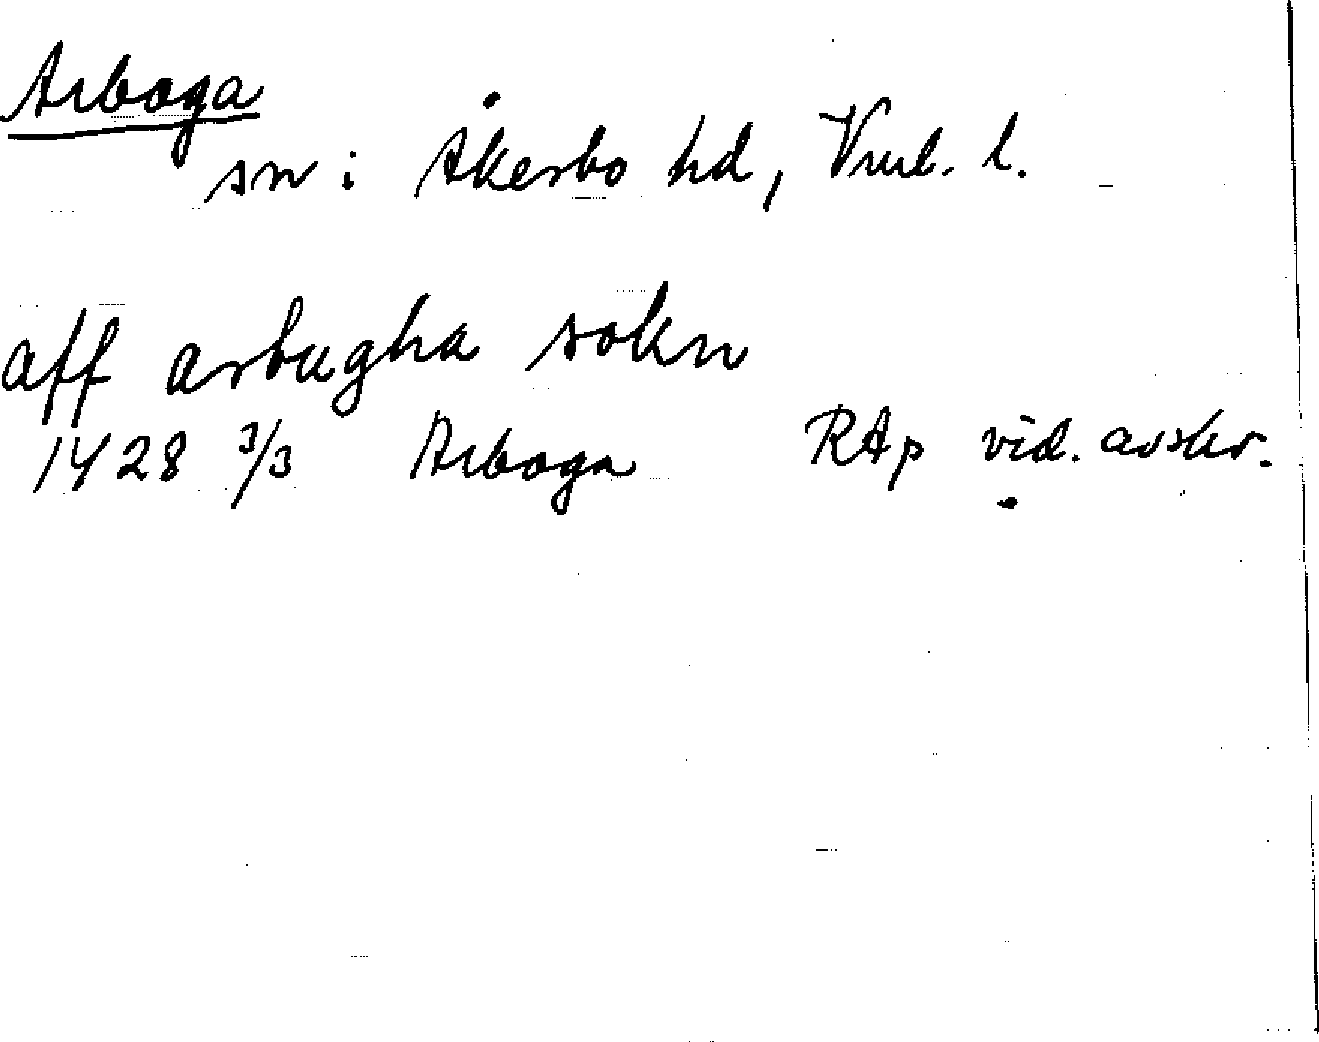 Arboga
sn i Åkerbo hd, Vml. l.
aff arbugha sokn
1428 3/3 Arboga RAp vid. avskr.